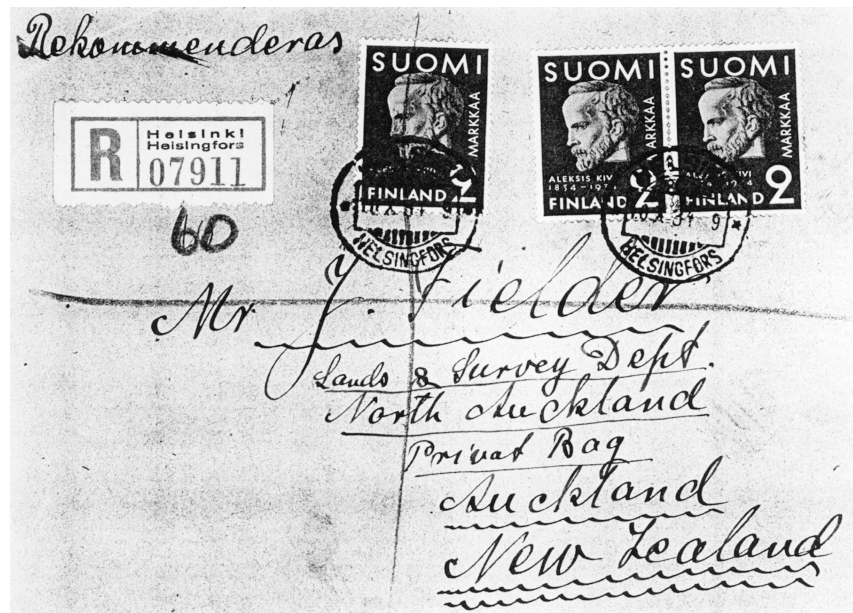 Rekommenderas
R Helsinki
Helsingfors
07911
60
SUOMI
MARKKAA
FINLAND 2
SUOMI
MARKKAA
ALEKSIS KIVI
1834-1934
FINLAND 2
SUOMI
MARKKAA
ALEKSIS KIVI
FINLAND 2
HELSINGFORS
HELSINGFORS
Mr J. Fielder
Lands & Survey Dept.
North Auckland
Privat Bag
Auckland
New Zealand